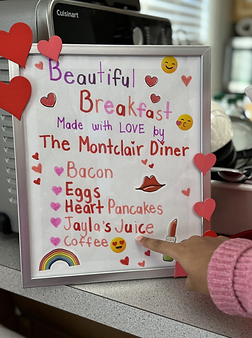 Cuisinart
Beautiful
Breakfast
Made with LOVE by
The Montclair Diner
Bacon
Eggs
Heart Pancakes
Jayla's Juice
Coffee